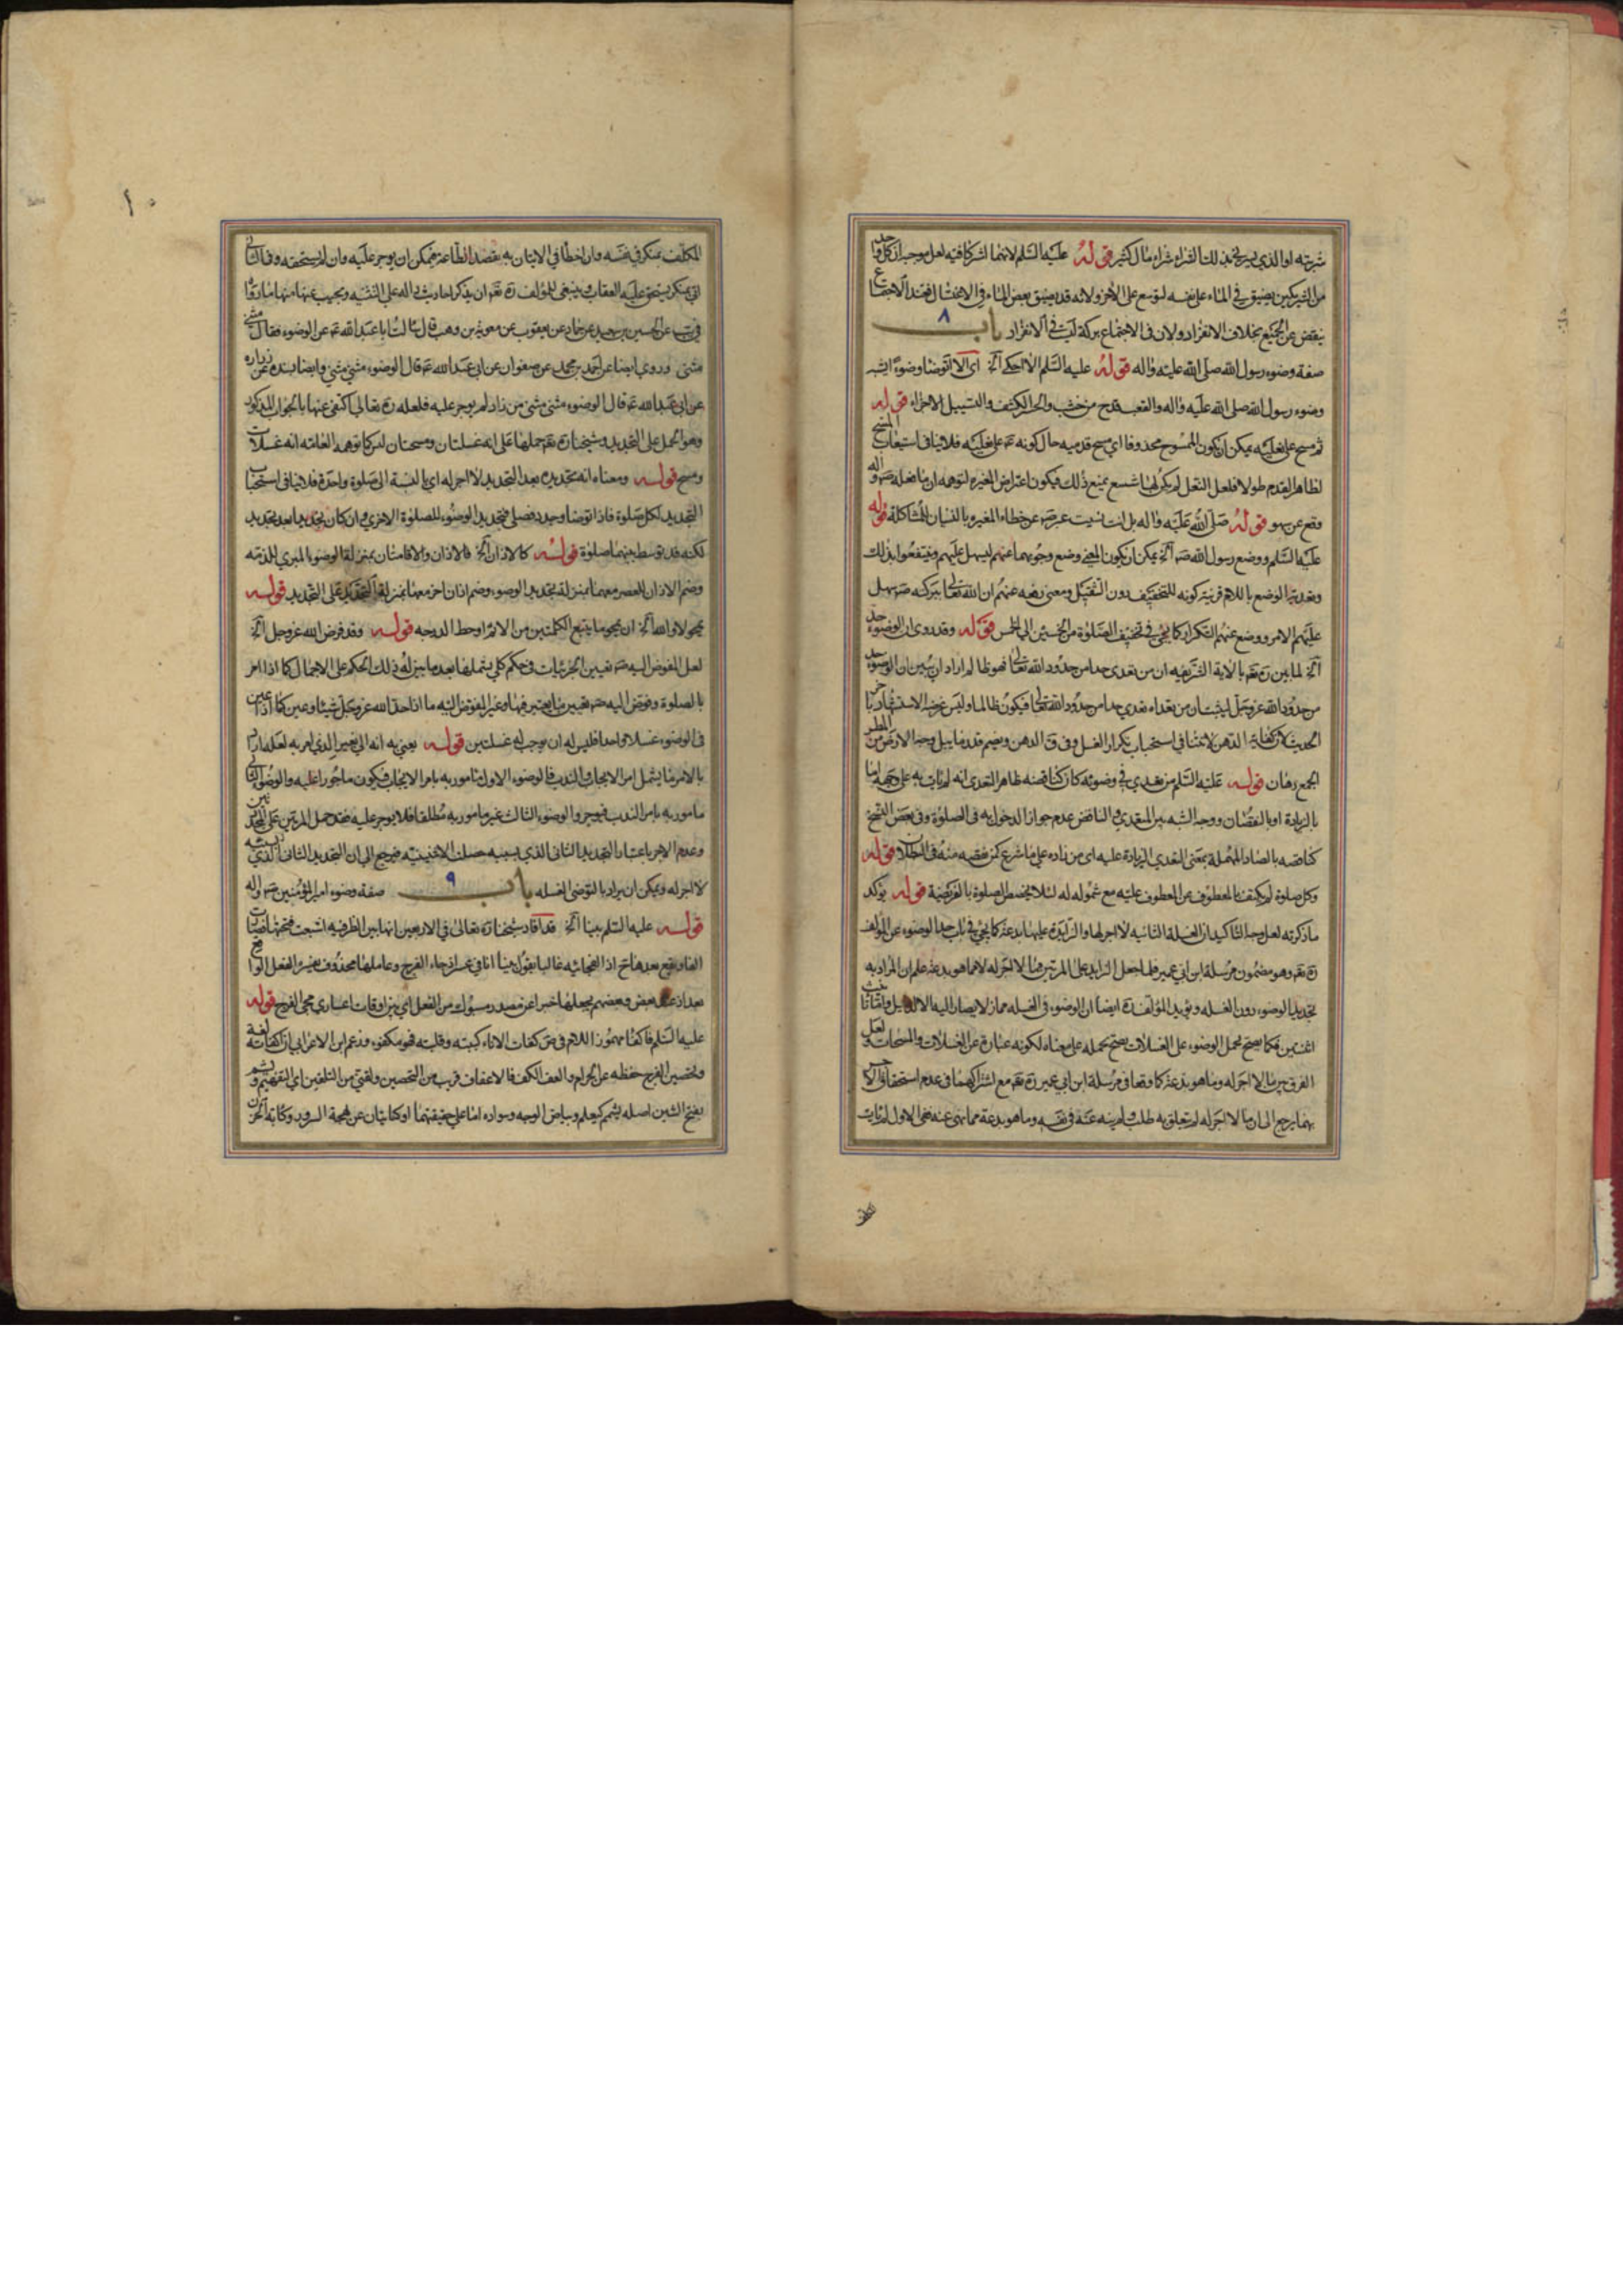 شربته او الذي يربح بذلك الشراء شراء مال كثير قوله عليه السلم لانهما اشتركا فيه لعل وجهه ان كل واحد
من الشريكين يضيق في الماء على نفسه ليوسع على الاخر ولانه قد يضيق بعض الماء في الاغتسال فعند الاجتماع
ينقص عن الجميع بخلاف الانفراد ولان في الاجتماع بركة ليست في الانفراد باب ٨
صفة وضوء رسول الله صلى الله عليه واله قوله عليه السلم الا احكي الخ اي الا اتوضا وضوءا يشبه
وضوء رسول الله صلى الله عليه واله والقعب قدح من خشب والحر الكتف والتسبيل الاجراء قوله
ثم مسح على نعليه يمكن ان يكون الممسوح محذوفا اي مسح قدميه حال كونه على نعليه فلا ينافي استيعاب المسح
لظاهر القدم طولا فلعل النعل لم يكن لها شسع يمنع ذلك فيكون اعتراض المغيرة لتوهمه ان ما فعله ص واله
وقع عن سهو قوله صلى الله عليه واله بل انت نسيت عبر ص عن خطاء المغيرة بالنسيان للمشاكلة قوله
عليه السلم ووضع رسول الله ص الخ يمكن ان يكون المعنى وضع وجوبهما عنهم ليسهل عليهم وينتفعوا بذلك
وتعدية الوضع باللام قرينة كونه للتخفيف دون التثقيل ومعنى وضعه عنهم ان الله تعالى ببركته ص سهل
عليهم الامر ووضع عنهم التكرار كما يجي في تخفيف الصلوة من الخمسين الى الخمس قوله وقد روي ان الوضوء حد
الخ لما بين ره بالاية الشريفة ان من تعدى حدا من حدود الله تعالى فهو ظالم اراد ان يبين ان الوضوء حد
من حدود الله عز وجل ليثبت ان من تعداه تعدى حدا من حدود الله تعالى فيكون ظالما وليس غرضه الاستشهاد باخر
الحديث لان كفاية الدهن لا تنافي استحباب تكرار الغسل وفي ق الدهن ويضم قدر ما يبل وجه الارض من المطر
الجمع دهان قوله عليه السلم من تعدى في وضوئه كان كناقضه ظاهر التعدي انه لم يات به على وجهه اما
بالزيادة او بالنقصان ووجه الشبه بين المتعدي والناقض عدم جواز الدخول به في الصلوة وفي بعض النسخ
كناقصه بالصاد المهملة بمعنى التعدي الزيادة عليه اي من زاده على ما شرع كمن نقصه منه في البطلان قوله
وكل صلوة لم يكتف بالمعطوف عن المعطوف عليه مع شموله له لئلا يخصص الصلوة بالفريضة قوله يؤكد
ما ذكرته لعل وجه التاكيد ان الغسلة الثانية لا اجر لها والزايدة عليها بدعة كما يجي في باب حد الوضوء عن المؤلف
ره وهو مضمون مرسلة ابن ابي عمير فلما جعل الزايد على المرتين هنا لا اجر له لا ما هو بدعة علم ان المراد به
تجديد الوضوء دون الغسله ويؤيد المؤلف ره ايضا ان الوضوء في الغسله مجاز لا يصار اليه الا لدليل
اثنتين فكما يصح بحمل الوضوء على الغسلات يصح بحمله على معناه لكونه عبارة عن الغسلات والمسحات ولعل
الفرق بين ما لا اجر له وما هو بدعة كما وقعا في مرسلة ابن ابي عمير ره مع اشتراكهما في عدم استحقاق الاجر
بهما يرجع الى ان ما لا اجر له لم يتعلق به طلب ولم ينه عنه في نفسه وما هو بدعة مما نهي عنه ففي الاول لم يات
١٠
المكلف بمنكر في نفسه وان اخطا في الاتيان به بقصد الطاعة فيمكن ان يوجر عليه وان لم يستحقه وفي الثاني
اتى بمنكر يستحق عليه العقاب وينبغي للمؤلف ره ان يذكر احاديث داله على التثنيه ويجيب عنها منها ما رواه
في يب عن الحسين بن سعيد عن حماد عن يعقوب عن معوية بن وهب قال سالت ابا عبد الله ع عن الوضوء فقال مثنى
مثنى وروي ايضا عن احمد بن محمد عن صفوان عن ابي عبد الله ع قال الوضوء مثنى مثنى وايضا بسنده عن زراره
عن ابي عبد الله ع قال الوضوء مثنى مثنى من زاد لم يوجر عليه فلعله ره تعالى اكتفى عنها بالجواب المذكور
وهو الحمل على التجديد وشيخنا ره حملها على انه غسلتان ومسحتان ليس كما توهمه العامه انه غسلات
ومسح قوله ومعناه انه تجديده بعد التجديد لا اجر له اي بالنسبة الى صلوة واحدة فلا ينافي استحباب
التجديد لكل صلوة فاذا توضا وجدد فصلى فتجديد الوضوء للصلوة الاخرى وان كان تجديدا بعد تجديد
لكنه قد توسط بينهما صلوة قوله كالاذان الخ فالاذان والاقامتان بمنزلة الوضوء المبري للذمه
وضم الاذان للعصر معهما بمنزلة تجديد الوضوء وضم اذان اخر معها بمنزلة التجديد على التجديد قوله
يمحو لا والله الخ ان يمحو ما يتبع الكلمتين من الاثم او حط الدرجه قوله وقد فرض الله عز وجل الخ
لعل المفوض اليه ص تعيين الجزئيات في حكم كلي يشملها بعد ما ينزله ذلك الحكم على الاجمال كما اذا امر
بالصلوة وفوض اليه ص تعيين ما يعتبر فيها وغير المفوض اليه ما اذا حد الله عز وجل شيئا وعين كما اذا عين
في الوضوء غسلا واحدا فليس له ان يوجب غسلتين قوله يعني به انه اتى بغير الذي امر به لعله اراد
بالامر ما يشمل امر الايجاب والندب فالوضوء الاول مامور به بامر الايجاب فيكون ماجورا عليه والوضوء الثاني
مامور به بامر الندب فيوجر والوضوء الثالث غير مامور به مطلقا فلا يوجر عليه فقد حمل المرتين على التجديدين
وعدم الاجر باعتبار التجديد الثاني الذي بسببه حصلت الاثنينيه فيرجع الى ان التجديد الثاني
لا اجر له ويمكن ان يراد بالتوضي الغسله باب ٩ صفة وضوء امير المؤمنين ص واله
قوله عليه السلم بينا الخ قد افاد شيخنا ره تعالى في الاربعين انها بين الظرفيه اشبعت فتحتها فصارت
الفا ويقع بعدها ح اذا الفجائيه غالبا تقول بينا انا في عسر اذ جاء الفرج وعاملها محذوف يفسره الفعل الواقع
بعد اذ عند بعض وبعضهم يجعلها خبرا عن مصدر مسبوك من الفعل اي بين اوقات اعساري مجي الفرج قوله
عليه السلم فاكفا مهموز اللام في ص كفات الاناء كببته وقلبته فهو مكفوء وزعم ابن الاعرابي ان اكفاته لغة
وتحصين الفرج حفظه عن الحرام والعف الكف فالاعفاف قريب من التحصين ولقني من التلقين اي التفهيم ويشم
بفتح الشين اصله يشمم كيعلم وبياض الوجه وسواده اما على حقيقتهما او كنايتان عن بهجة السرور وكآبة الحزن